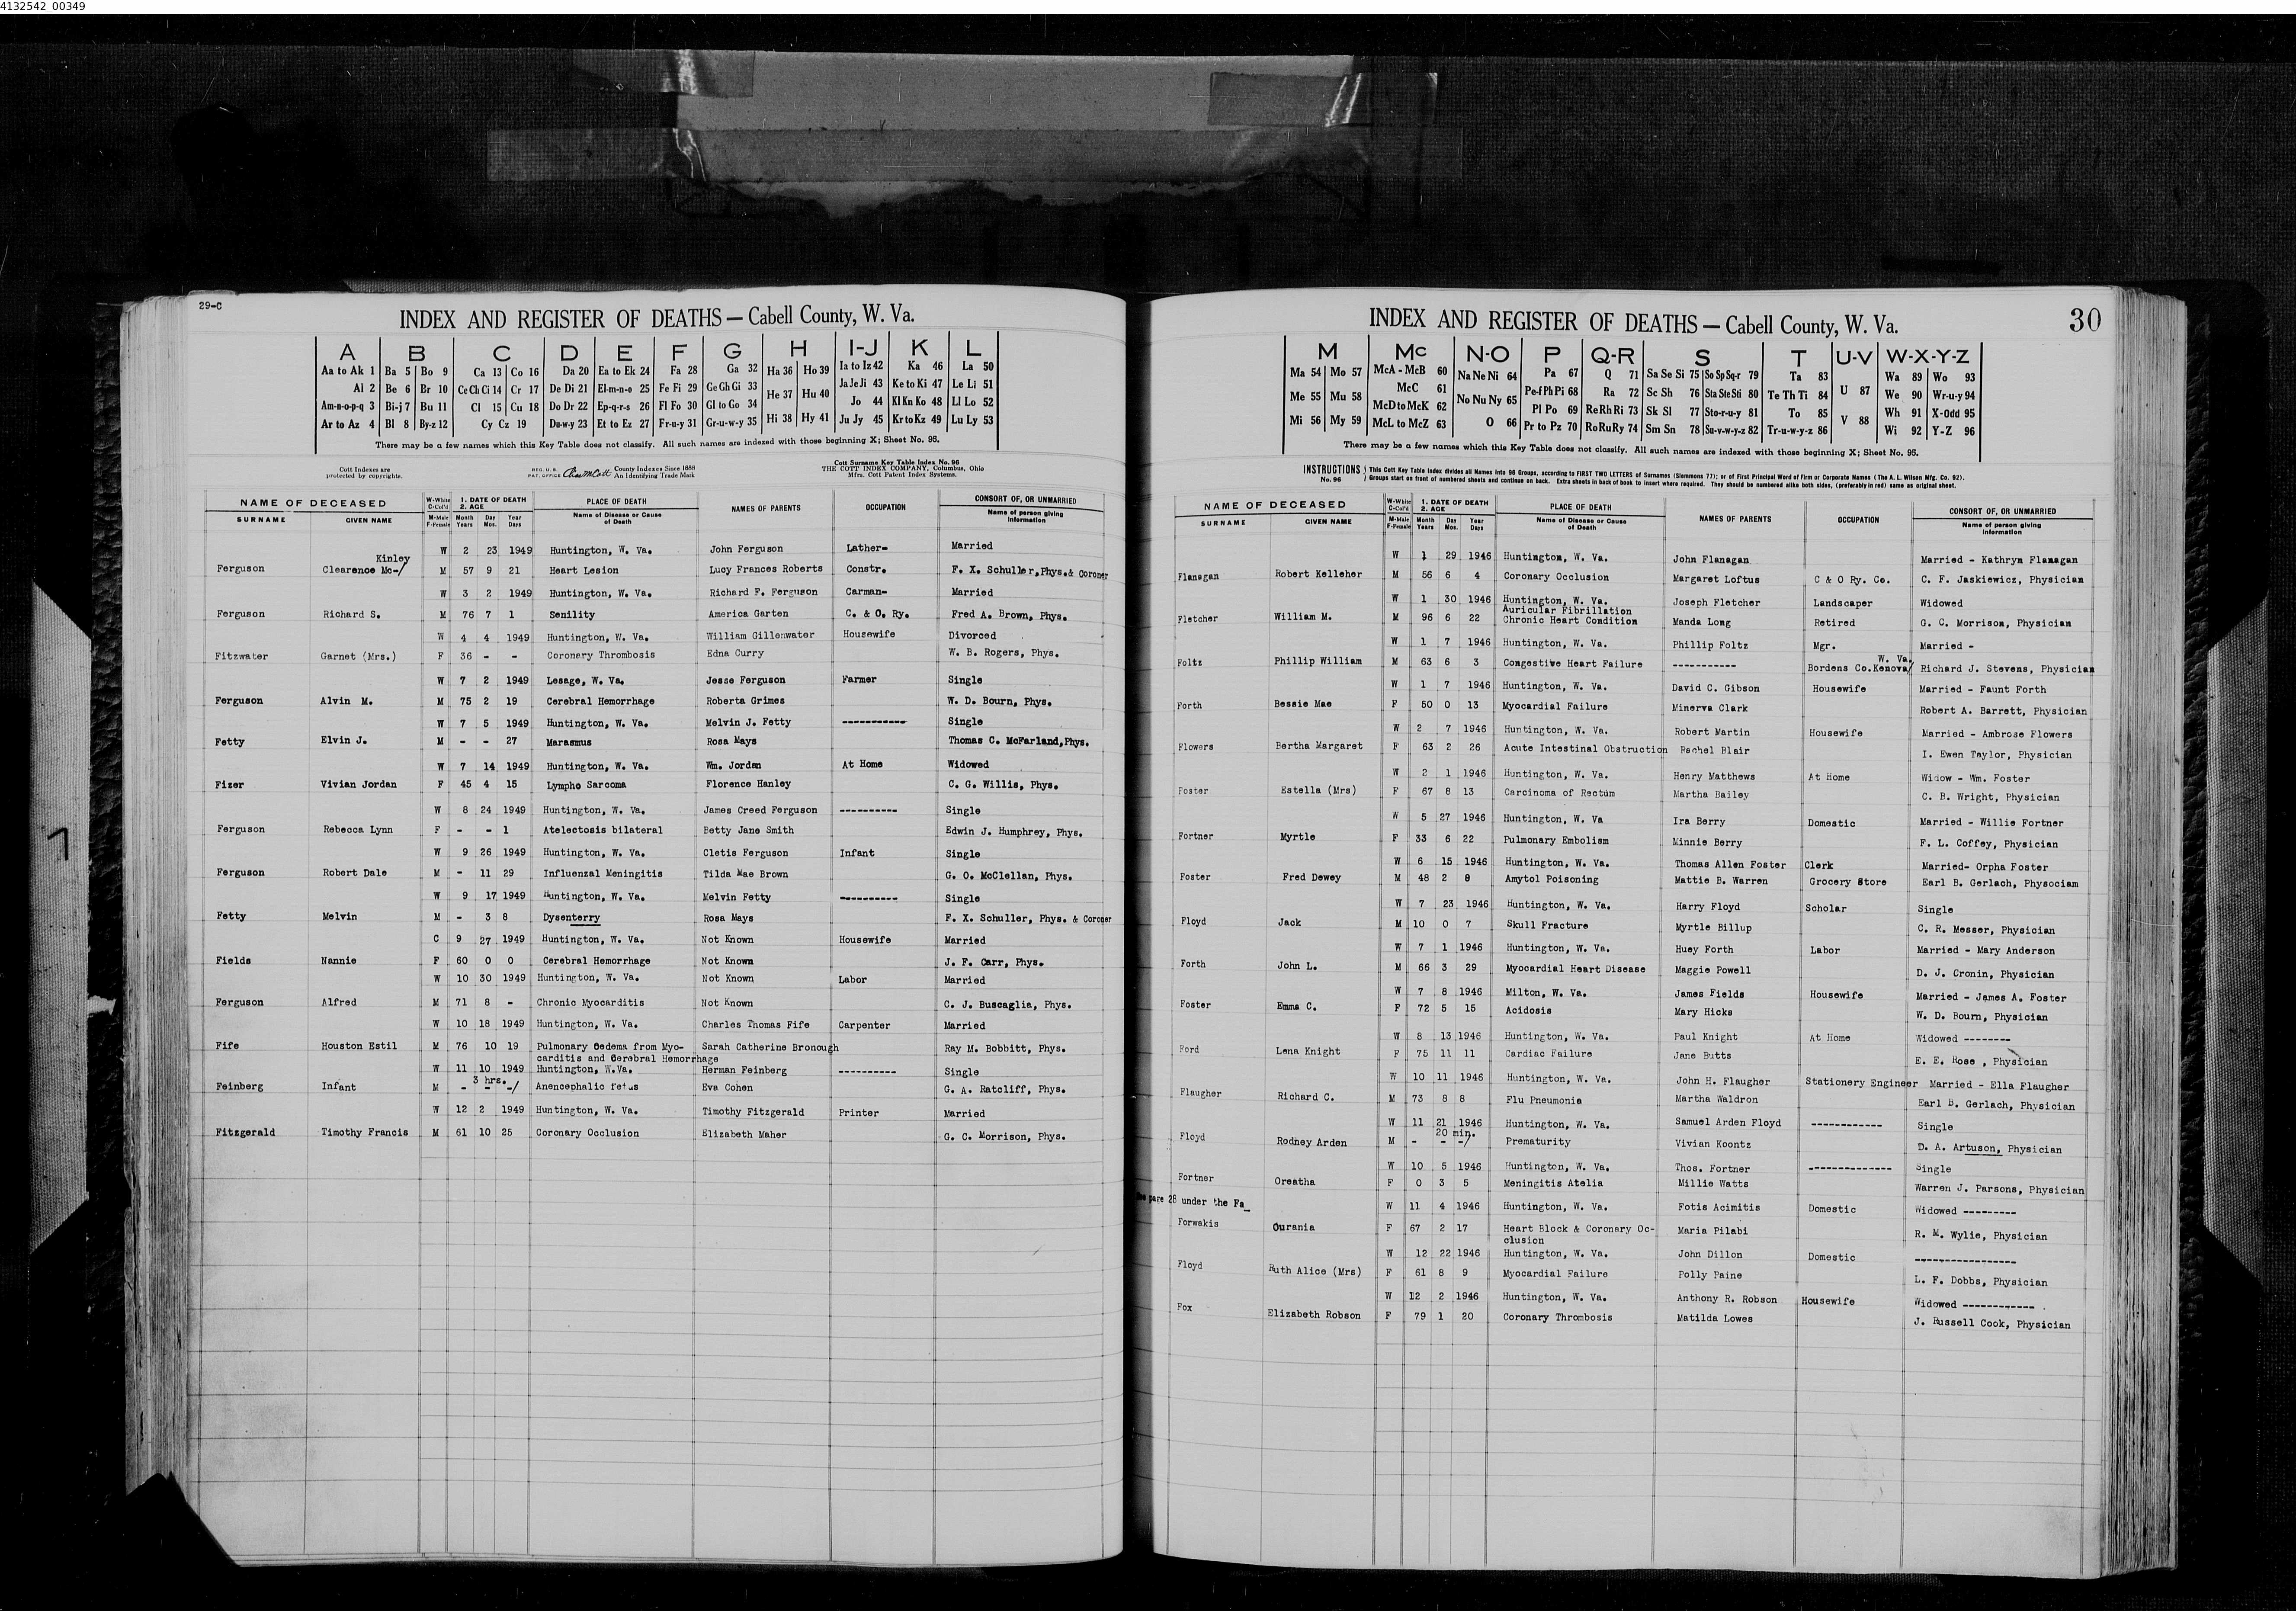 4132542_00349
29-C
INDEX AND REGISTER OF DEATHS — Cabell County, W. Va.
A B C D E F G H I-J K L
Aa to Ak 1 Ba 5 Bo 9 Ca 13 Co 16 Da 20 Ea to Ek 24 Fa 28 Ga 32 Ha 36 Ho 39 Ia to Iz 42 Ka 46 La 50
Al 2 Be 6 Br 10 Ce Ch Ci 14 Cr 17 De Di 21 El-m-n-o 25 Fe Fi 29 Ge Gh Gi 33 He 37 Hu 40 Ja Je Ji 43 Ke to Ki 47 Le Li 51
Am-n-o-p-q 3 Bi-j 7 Bu 11 Cl 15 Cu 18 Do Dr 22 Ep-q-r-s 26 Fl Fo 30 Gl to Go 34 Jo 44 Kl Kn Ko 48 Ll Lo 52
Ar to Az 4 Bl 8 By-z 12 Cy Cz 19 Du-w-y 23 Et to Ez 27 Fr-u-y 31 Gr-u-w-y 35 Hi 38 Hy 41 Ju Jy 45 Kr to Kz 49 Lu Ly 53
There may be a few names which this Key Table does not classify. All such names are indexed with those beginning X; Sheet No. 95.
Cott Indexes are protected by copyrights.
REG. U. S. PAT. OFFICE County Indexes Since 1888 An Identifying Trade Mark
Cott Surname Key Table Index No. 96
THE COTT INDEX COMPANY, Columbus, Ohio
Mrs. Cott Patent Index Systems.
NAME OF DECEASED W-White C-Col'd 1. DATE OF DEATH 2. AGE PLACE OF DEATH NAMES OF PARENTS OCCUPATION CONSORT OF, OR UNMARRIED
SURNAME GIVEN NAME M-Male F-Female Month Years Day Mos. Year Days Name of Disease or Cause of Death Name of person giving information
Kinley W 2 23 1949 Huntington, W. Va. John Ferguson Lather- Married
Ferguson Clearence Mc-/ M 57 9 21 Heart Lesion Lucy Frances Roberts Constr. F. X. Schuller, Phys. & Coroner
W 3 2 1949 Huntington, W. Va. Richard F. Ferguson Carman- Married
Ferguson Richard S. M 76 7 1 Senility America Garten C. & O. Ry. Fred A. Brown, Phys.
W 4 4 1949 Huntington, W. Va. William Gillenwater Housewife Divorced
Fitzwater Garnet (Mrs.) F 36 - - Coronary Thrombosis Edna Curry W. B. Rogers, Phys.
W 7 2 1949 Lesage, W. Va. Jesse Ferguson Farmer Single
Ferguson Alvin M. M 75 2 19 Cerebral Hemorrhage Roberta Grimes W. D. Bourn, Phys.
W 7 5 1949 Huntington, W. Va. Melvin J. Fetty ----------- Single
Fetty Elvin J. M - - 27 Marasmus Rosa Mays Thomas C. McFarland, Phys.
W 7 14 1949 Huntington, W. Va. Wm. Jordan At Home Widowed
Fizer Vivian Jordan F 45 4 15 Lympho Sarcoma Florence Hanley C. G. Willis, Phys.
W 8 24 1949 Huntington, W. Va. James Creed Ferguson ---------- Single
Ferguson Rebecca Lynn F - - 1 Atelectosis bilateral Betty Jane Smith Edwin J. Humphrey, Phys.
W 9 26 1949 Huntington, W. Va. Cletis Ferguson Infant Single
Ferguson Robert Dale M - 11 29 Influenzal Meningitis Tilda Mae Brown G. O. McClellan, Phys.
W 9 17 1949 Huntington, W. Va. Melvin Fetty ---------- Single
Fetty Melvin M - 3 8 Dysenterry Rosa Mays F. X. Schuller, Phys. & Coroner
C 9 27 1949 Huntington, W. Va. Not Known Housewife Married
Fields Nannie F 60 0 0 Cerebral Hemorrhage Not Known J. F. Carr, Phys.
W 10 30 1949 Huntington, W. Va. Not Known Labor Married
Ferguson Alfred M 71 8 - Chronic Myocarditis Not Known C. J. Buscaglia, Phys.
W 10 18 1949 Huntington, W. Va. Charles Thomas Fife Carpenter Married
Fife Houston Estil M 76 10 19 Pulmonary Oedema from Myo- Sarah Catherine Bronough Ray M. Bobbitt, Phys.
carditis and Cerebral Hemorrhage
W 11 10 1949 Huntington, W.Va. Herman Feinberg ---------- Single
3 hrs.
Feinberg Infant M - - -/ Anencephalic fetus Eva Cohen G. A. Ratcliff, Phys.
W 12 2 1949 Huntington, W. Va. Timothy Fitzgerald Printer Married
Fitzgerald Timothy Francis M 61 10 25 Coronary Occlusion Elizabeth Maher G. C. Morrison, Phys.
INDEX AND REGISTER OF DEATHS — Cabell County, W. Va. 30
M Mc N-O P Q-R S T U-V W-X-Y-Z
Ma 54 Mo 57 McA - McB 60 Na Ne Ni 64 Pa 67 Q 71 Sa Se Si 75 So Sp Sq-r 79 Ta 83 Wa 89 Wo 93
Me 55 Mu 58 McC 61 No Nu Ny 65 Pe-f Ph Pi 68 Ra 72 Sc Sh 76 Sta Ste Sti 80 Te Th Ti 84 U 87 We 90 Wr-u-y 94
McD to McK 62 Pl Po 69 Re Rh Ri 73 Sk Sl 77 Sto-r-u-y 81 To 85 Wh 91 X-Odd 95
Mi 56 My 59 McL to McZ 63 O 66 Pr to Pz 70 Ro Ru Ry 74 Sm Sn 78 Su-v-w-y-z 82 Tr-u-w-y-z 86 V 88 Wi 92 Y-Z 96
There may be a few names which this Key Table does not classify. All such names are indexed with those beginning X; Sheet No. 95.
INSTRUCTIONS No. 96 This Cott Key Table Index divides all Names into 96 Groups, according to FIRST TWO LETTERS of Surnames (Slemmons 77); or of First Principal Word of Firm or Corporate Names (The A. L. Wilson Mfg. Co. 92).
Groups start on front of numbered sheets and continue on back. Extra sheets in back of book to insert where required. They should be numbered alike both sides, (preferably in red) same as original sheet.
NAME OF DECEASED W-White C-Col'd 1. DATE OF DEATH 2. AGE PLACE OF DEATH NAMES OF PARENTS OCCUPATION CONSORT OF, OR UNMARRIED
SURNAME GIVEN NAME M-Male F-Female Month Years Day Mos. Year Days Name of Disease or Cause of Death Name of person giving information
W 1 29 1946 Huntington, W. Va. John Flanagan Married - Kathryn Flanagan
Flanagan Robert Kelleher M 56 6 4 Coronary Occlusion Margaret Loftus C & O Ry. Co. C. F. Jaskiewicz, Physician
W 1 30 1946 Huntington, W. Va. Joseph Fletcher Landscaper Widowed
Auricular Fibrillation
Fletcher William M. M 96 6 22 Chronic Heart Condition Manda Long Retired G. C. Morrison, Physician
W 1 7 1946 Huntington, W. Va. Phillip Foltz Mgr. Married -
W. Va.
Foltz Phillip William M 63 6 3 Congestive Heart Failure ----------- Bordens Co.Kenova/ Richard J. Stevens, Physician
W 1 7 1946 Huntington, W. Va. David C. Gibson Housewife Married - Faunt Forth
Forth Bessie Mae F 50 0 13 Myocardial Failure Minerva Clark Robert A. Barrett, Physician
W 2 7 1946 Huntington, W. Va. Robert Martin Housewife Married - Ambrose Flowers
Flowers Bertha Margaret F 63 2 26 Acute Intestinal Obstruction Rachel Blair I. Ewen Taylor, Physician
W 2 1 1946 Huntington, W. Va. Henry Matthews At Home Widow - Wm. Foster
Foster Estella (Mrs) F 67 8 13 Carcinoma of Rectum Martha Bailey C. B. Wright, Physician
W 5 27 1946 Huntington, W. Va Ira Berry Domestic Married - Willie Fortner
Fortner Myrtle F 33 6 22 Pulmonary Embolism Minnie Berry F. L. Coffey, Physician
W 6 15 1946 Huntington, W. Va. Thomas Allen Foster Clerk Married- Orpha Foster
Foster Fred Dewey M 48 2 8 Amytol Poisoning Mattie B. Warren Grocery Store Earl B. Gerlach, Physociam
W 7 23 1946 Huntington, W. Va. Harry Floyd Scholar Single
Floyd Jack M 10 0 7 Skull Fracture Myrtle Billup C. R. Messer, Physician
W 7 1 1946 Huntington, W. Va. Huey Forth Labor Married - Mary Anderson
Forth John L. M 66 3 29 Myocardial Heart Disease Maggie Powell D. J. Cronin, Physician
W 7 8 1946 Milton, W. Va. James Fields Housewife Married - James A. Foster
Foster Emma C. F 72 5 15 Acidosis Mary Hicks W. D. Bourn, Physician
W 8 13 1946 Huntington, W. Va. Paul Knight At Home Widowed --------
Ford Lena Knight F 75 11 11 Cardiac Failure Jane Butts E. E. Rose , Physician
W 10 11 1946 Huntington, W. Va. John H. Flaugher Stationery Engineer Married - Ella Flaugher
Flaugher Richard C. M 73 8 8 Flu Pneumonia Martha Waldron Earl B. Gerlach, Physician
W 11 21 1946 Huntington, W. Va. Samuel Arden Floyd ------------ Single
20 min.
Floyd Rodney Arden M - - -/ Prematurity Vivian Koontz D. A. Artuson, Physician
W 10 5 1946 Huntington, W. Va. Thos. Fortner -------------- Single
Fortner Oreatha F 0 3 5 Meningitis Atelia Millie Watts Warren J. Parsons, Physician
28 under the Fa_
W 11 4 1946 Huntington, W. Va. Fotis Acimitis Domestic Widowed ---------
Forwakis Ourania F 67 2 17 Heart Block & Coronary Oc- Maria Pilabi R. M. Wylie, Physician
clusion
W 12 22 1946 Huntington, W. Va. John Dillon Domestic -----------------
Floyd Ruth Alice (Mrs) F 61 8 9 Myocardial Failure Polly Paine L. F. Dobbs, Physician
W 12 2 1946 Huntington, W. Va. Anthony R. Robson Housewife Widowed ------------
Fox Elizabeth Robson F 79 1 20 Coronary Thrombosis Matilda Lowes J. Russell Cook, Physician